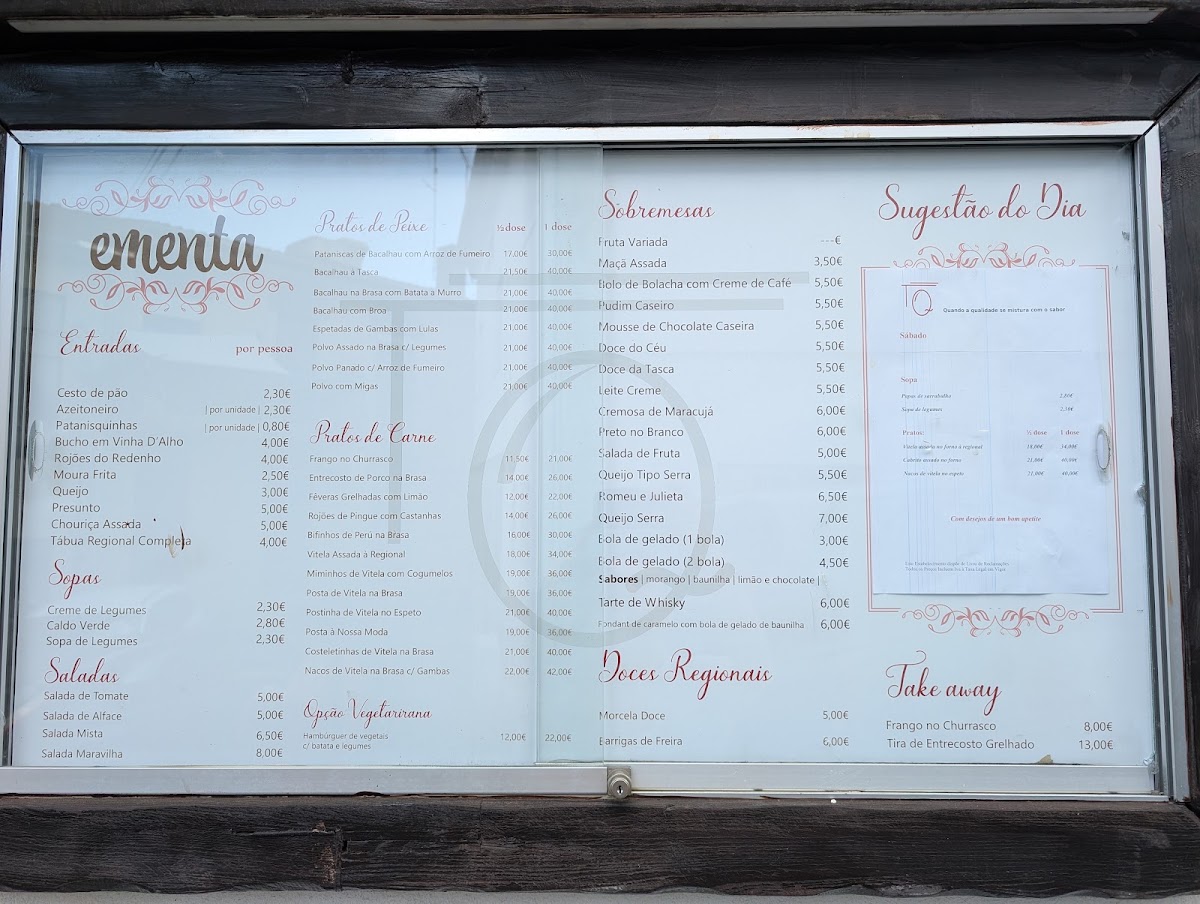 ementa
Entradas por pessoa
Cesto de pão 2,30€
Azeitoneiro | por unidade | 2,30€
Patanisquinhas | por unidade | 0,80€
Bucho em Vinha D'Alho 4,00€
Rojões do Redenho 4,00€
Moura Frita 2,50€
Queijo 3,00€
Presunto 5,00€
Chouriça Assada 5,00€
Tábua Regional Completa 4,00€
Sopas
Creme de Legumes 2,30€
Caldo Verde 2,80€
Sopa de Legumes 2,30€
Saladas
Salada de Tomate 5,00€
Salada de Alface 5,00€
Salada Mista 6,50€
Salada Maravilha 8,00€
Pratos de Peixe ½ dose 1 dose
Pataniscas de Bacalhau com Arroz de Fumeiro 17,00€ 30,00€
Bacalhau à Tasca 21,50€ 40,00€
Bacalhau na Brasa com Batata à Murro 21,00€ 40,00€
Bacalhau com Broa 21,00€ 40,00€
Espetadas de Gambas com Lulas 21,00€ 40,00€
Polvo Assado na Brasa c/ Legumes 21,00€ 40,00€
Polvo Panado c/ Arroz de Fumeiro 21,00€ 40,00€
Polvo com Migas 21,00€ 40,00€
Pratos de Carne
Frango no Churrasco 11,50€ 21,00€
Entrecosto de Porco na Brasa 14,00€ 26,00€
Fêveras Grelhadas com Limão 12,00€ 22,00€
Rojões de Pingue com Castanhas 14,00€ 26,00€
Bifinhos de Perú na Brasa 16,00€ 30,00€
Vitela Assada à Regional 18,00€ 34,00€
Miminhos de Vitela com Cogumelos 19,00€ 36,00€
Posta de Vitela na Brasa 19,00€ 36,00€
Postinha de Vitela no Espeto 21,00€ 40,00€
Posta à Nossa Moda 19,00€ 36,00€
Costeletinhas de Vitela na Brasa 21,00€ 40,00€
Nacos de Vitela na Brasa c/ Gambas 22,00€ 42,00€
Opção Vegetarirana
Hambúrguer de vegetais
c/ batata e legumes 12,00€ 22,00€
Sobremesas
Fruta Variada ---€
Maçã Assada 3,50€
Bolo de Bolacha com Creme de Café 5,50€
Pudim Caseiro 5,50€
Mousse de Chocolate Caseira 5,50€
Doce do Céu 5,50€
Doce da Tasca 5,50€
Leite Creme 5,50€
Cremosa de Maracujá 6,00€
Preto no Branco 6,00€
Salada de Fruta 5,00€
Queijo Tipo Serra 5,50€
Romeu e Julieta 6,50€
Queijo Serra 7,00€
Bola de gelado (1 bola) 3,00€
Bola de gelado (2 bola) 4,50€
Sabores | morango | baunilha | limão e chocolate |
Tarte de Whisky 6,00€
Fondant de caramelo com bola de gelado de baunilha 6,00€
Doces Regionais
Morcela Doce 5,00€
Barrigas de Freira 6,00€
Sugestão do Dia
TQ Quando a qualidade se mistura com o sabor
Sábado
Sopa
Papas de sarrabulho 2,80€
Sopa de legumes 2,30€
Pratos: ½ dose 1 dose
Vitela assada no forno à regional 18,00€ 34,00€
Cabrito assado no forno 21,00€ 40,00€
Nacos de vitela no espeto 21,00€ 40,00€
Com desejos de um bom apetite
Este Estabelecimento dispõe de Livro de Reclamações
Todos os Preços Incluem Iva à Taxa Legal em Vigor
Take away
Frango no Churrasco 8,00€
Tira de Entrecosto Grelhado 13,00€